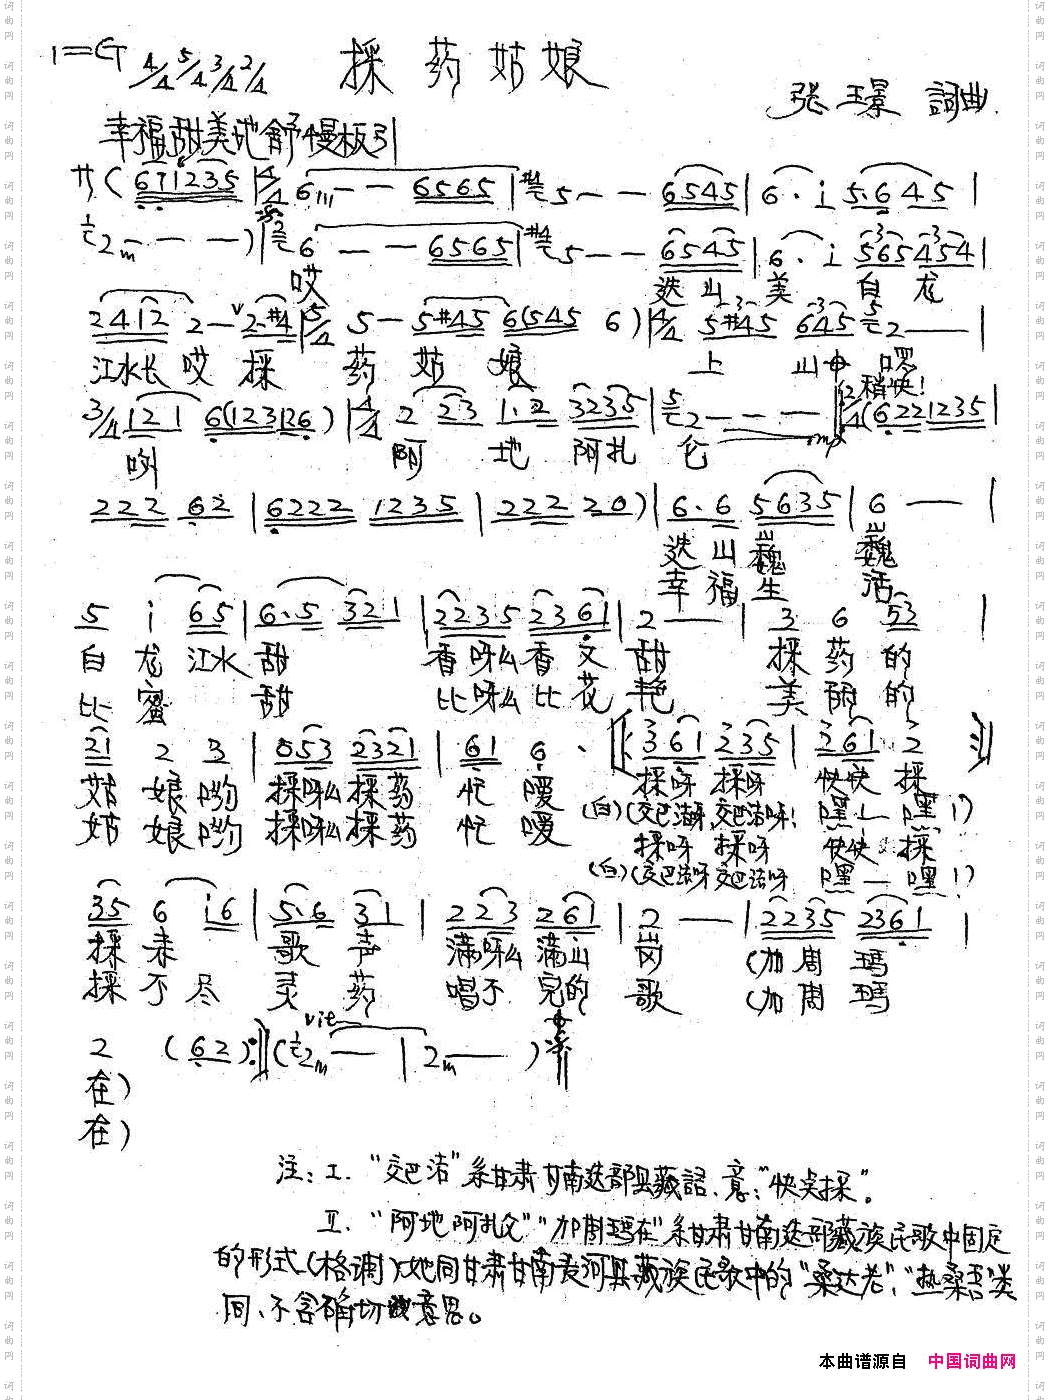 1=G 4/4 5/4 3/4 2/4 採药姑娘
张玉景 詞曲
幸福甜美地 舒慢板引
サ( 671235 | 4/4 6 - - 6565 | 5 - - 6545 | 6 · i 5·645 |
2 - - - ) | 6 - - 6565 | 5 - - 6545 | 6 · i 565 454 |
哎 迭山 美 白 龙
2412 2 - 2·#4 | 5/4 5 - 5#45 6(545 6) | 4/4 5#45 645 2 - - |
江水长 哎 採 药 姑 娘 上 山中 啰
稍快!
3/4 121 6(123126) | 4/4 2 23 1·2 3235 | 2 - - - | 2/4 (6221235 |
哟 阿 地 阿扎 仑
222 62 | 6222 1235 | 222 20) | 6·6 5635 | 6 - - |
迭山巍 巍
幸福生 活
5 i 65 | 6·5 321 | 2235 2361 | 2 - - | 3 6 53 |
白 龙 江水 甜 香呀么香 又 甜 採 药 的
比 蜜 甜 比呀么比 花 艳 美 丽 的
21 2 3 | 053 2321 | 61 6 · 361 235 | 361 2
姑 娘 哟 採呀么採药 忙 嗳 採呀 採呀 快快 採
姑 娘 哟 採呀么採药 忙 嗳 (白)(交巴洁呀,交巴洁呀! 嘿 — 嘿!)
採呀 採呀 快快 採
(白)(交巴洁呀 交巴洁呀 嘿 — 嘿!)
35 6 i6 | 5·6 31 | 223 261 | 2 - - | 2235 2361 |
採 来 歌 声 满呀么满山 岗 (加周 玛
採 不 尽 灵 药 唱不 完的 歌 (加周 玛
2 (62) :‖ (2 - - | 2 - - )
在)
在)
注:I、“交巴洁”系甘肃甘南迭部县藏語、意:“快点採”。
II、“阿地阿扎仑”“加周玛在”系甘肃甘南迭部藏族民歌中固定
的形式(格调)它同甘肃甘南夏河县藏族民歌中的“桑达老”、“热桑吾”类
同、不含确切意思。
本曲谱源自 中国词曲网